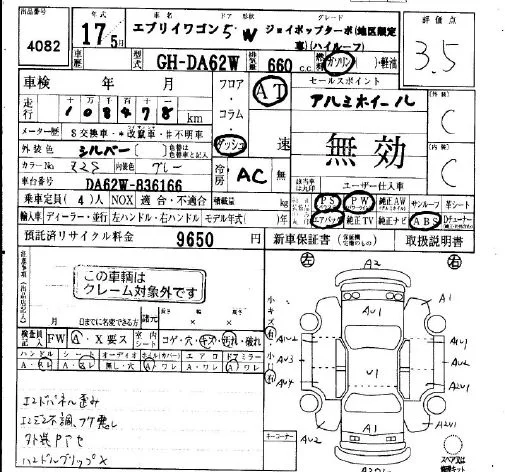 出品番号 4082
年式 17年5月
車名 エブリイワゴン
ドア 形状 5W
グレード ジョイポップターボ(地区限定車)(ハイルーフ)
評価点 3.5
車歴
型式 GH-DA62W
排気量 660 c.c.
燃料 ガソリン・軽油
車検 年 月
フロア・コラム・ダッシュ
AT 速
セールスポイント
アルミホイール
外装 C
内装 C
走行 108478 km
メーター歴 S交換車・*改竄車・#不明車
無効
外装色 シルバー
カラーNo Z2S 内装色 グレー
冷房 AC 無
ユーザー仕入車
車台番号 DA62W-836166
乗車定員(4)人 NOX 適合・不適合 積載量 kg
PS パワステ PW パワーウィンド 純正AW サンルーフ 革シート
輸入車 ディーラー・並行 左ハンドル・右ハンドル モデル年式( )年
エアバック 純正TV 純正ナビ ABS
預託済リサイクル料金 9650 円
新車保証書 取扱説明書
この車輌は
クレーム対象外です
左 A2 右
日までに名変できる方
諸元 長さ 幅 高さ
検査員記入 FW A・X要ス 室内シート コゲ・穴・キズ・汚れ・破れ
ハンドル シート オーディオ エアロ ドアミラー
小キズ有
AU1 A1
A1U2 A1
AU3 U1 A2U1
AU4
AU2 A1 A2U1
エンドパネル歪み
エンジン不調、フケ悪し
外装Pアセ
ハンドルグリップ×
コーナーコーキー
スペアタイヤ